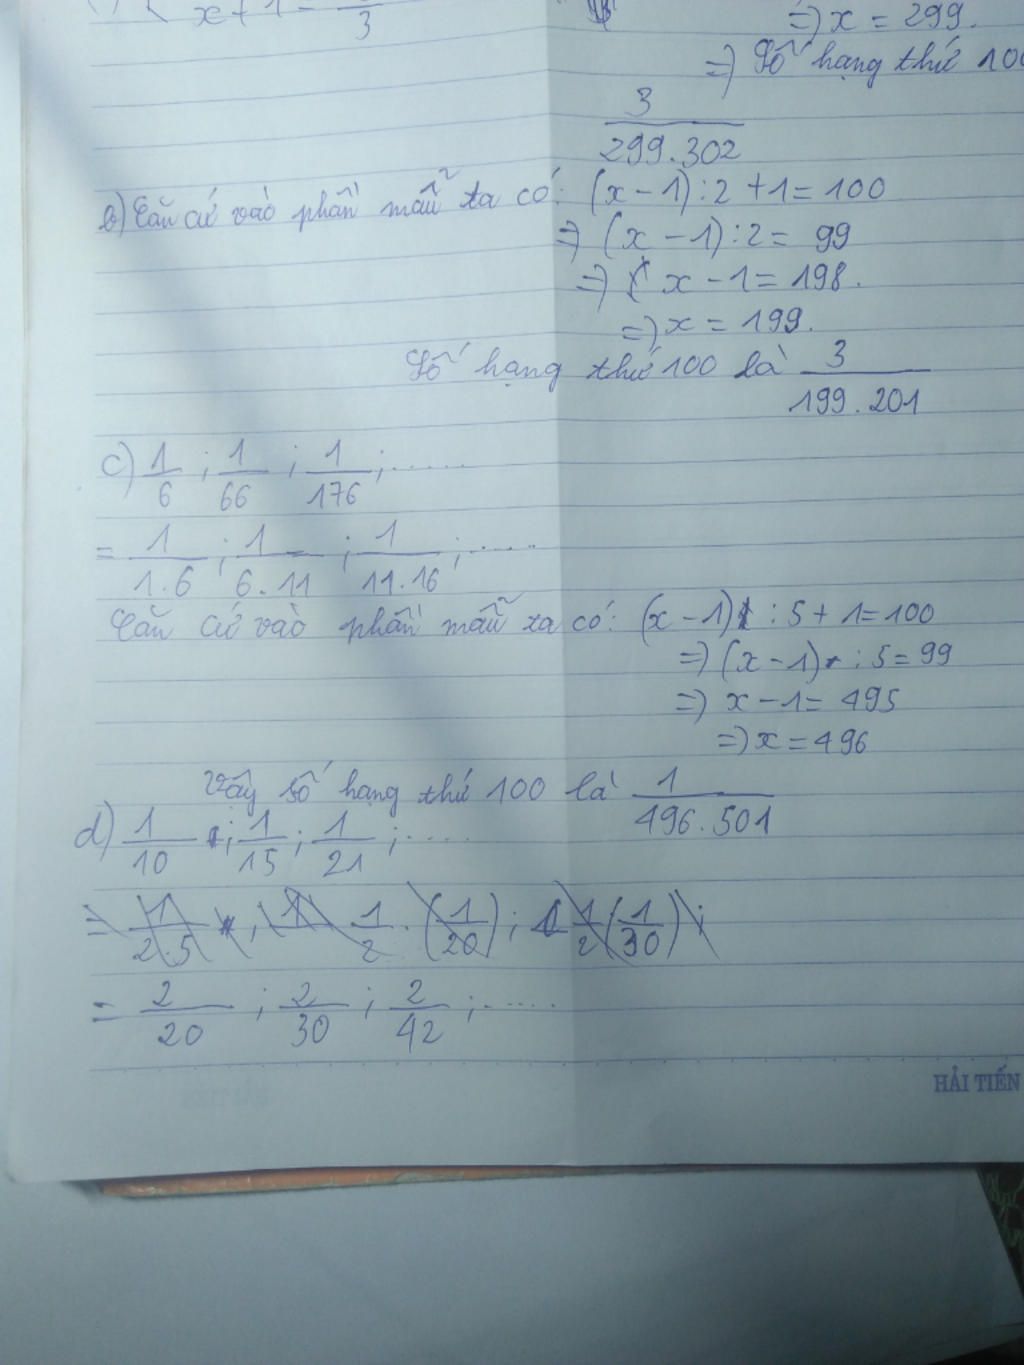 x + 1 =
3
=> x = 299.
=> Số hạng thứ 100
3
299.302
b) Căn cứ vào phần mẫu ta có: (x - 1) : 2 + 1 = 100
=> (x - 1) : 2 = 99
=> x - 1 = 198.
=> x = 199.
Số hạng thứ 100 là 3/199.201
c) 1/6 ; 1/66 ; 1/176 ; .....
= 1/1.6 ; 1/6.11 ; 1/11.16 ; .....
Căn cứ vào phần mẫu ta có: (x - 1) : 5 + 1 = 100
=> (x - 1) : 5 = 99
=> x - 1 = 495
=> x = 496
Vậy số hạng thứ 100 là 1/496.501
d) 1/10 ; 1/15 ; 1/21 ; ....
= 1/2.5 ; 1/2 . (1/20) ; 1/2 (1/30) ;
= 2/20 ; 2/30 ; 2/42 ; .....
HẢI TIẾN